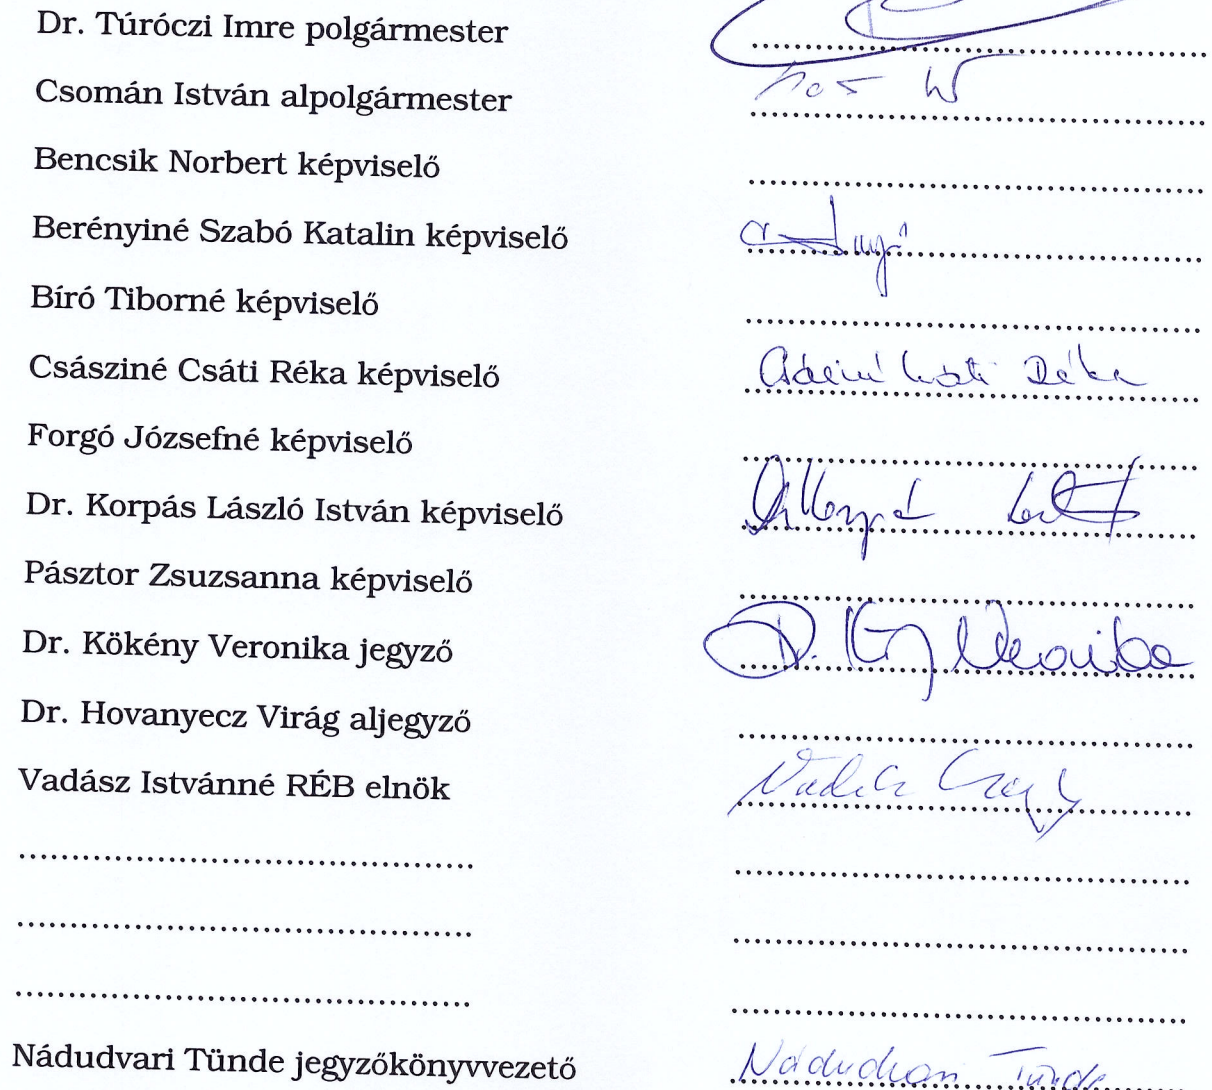 Dr. Túróczi Imre polgármester
Csomán István alpolgármester
Bencsik Norbert képviselő
Berényiné Szabó Katalin képviselő
Bíró Tiborné képviselő
Császiné Csáti Réka képviselő Réka
Forgó Józsefné képviselő
Dr. Korpás László István képviselő
Pásztor Zsuzsanna képviselő
Dr. Kökény Veronika jegyző Veronika
Dr. Hovanyecz Virág aljegyző
Vadász Istvánné RÉB elnök
Nádudvari Tünde jegyzőkönyvvezető Nádudvari Tünde